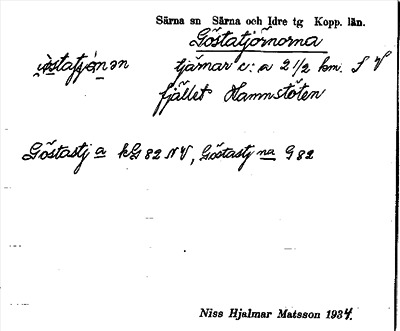 Särna sn Särna och Idre tg Kopp. län.
Göstatjörnorna
tjärnar c:a 2 1/2 km. S V
fjället Hammstöten
Göstastj a kG 82 NV, Göstastj na G 82
Niss Hjalmar Matsson 1934.